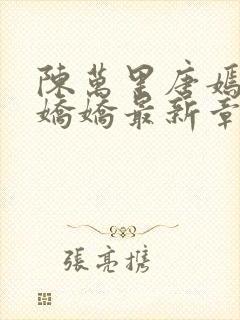 陳萬里唐嫣
嬌嬌最新章
張亮攜